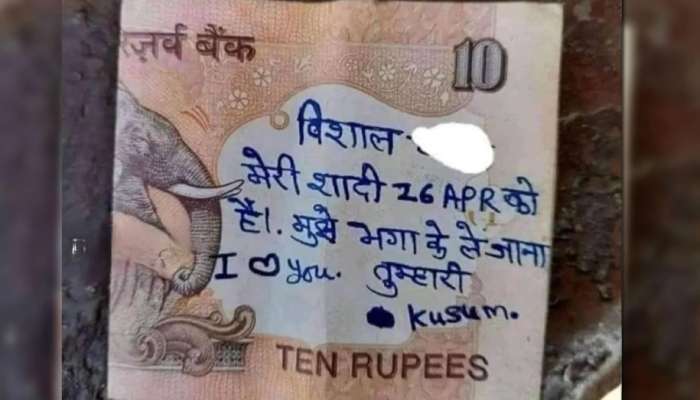 रज़र्व बैंक
10
विशाल
मेरी शादी 26 APR को
है।. मुझे भगा के ले जाना
I ♡ you. तुम्हारी
Kusum.
TEN RUPEES